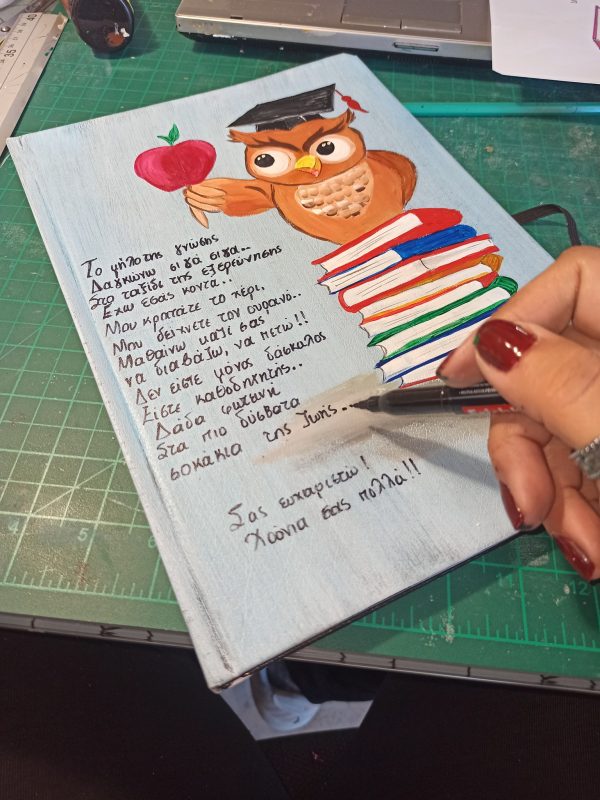 Το μήλο της γνώσης
Δαγκώνω σιγά σιγά..
Στο ταξίδι της εξερεύνησης
Έχω εσάς κοντά..
Μου κρατάτε το χέρι,
Μου δείχνετε τον ουρανό..
Μαθαίνω μαζί σας
να διαβάζω, να πετώ!!
Δεν είστε μόνος δάσκαλος
Είστε καθοδηγητής..
Δάδα φωτεινή
Στα πιο δύσβατα
σοκάκια της Ζωής..
Σας ευχαριστώ!
Χρόνια σας πολλά!!